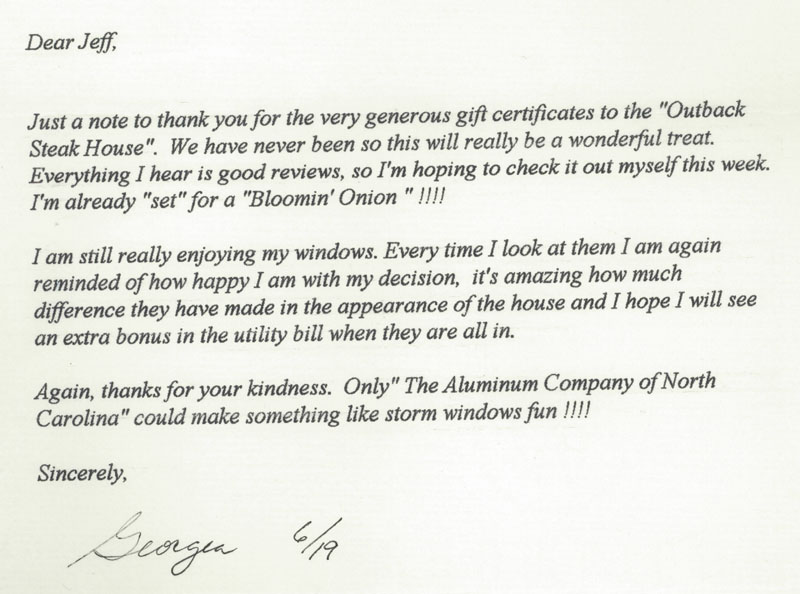 Dear Jeff,
Just a note to thank you for the very generous gift certificates to the "Outback
Steak House".  We have never been so this will really be a wonderful treat.
Everything I hear is good reviews, so I'm hoping to check it out myself this week.
I'm already "set" for a "Bloomin' Onion " !!!!
I am still really enjoying my windows. Every time I look at them I am again
reminded of how happy I am with my decision,  it's amazing how much
difference they have made in the appearance of the house and I hope I will see
an extra bonus in the utility bill when they are all in.
Again, thanks for your kindness.  Only" The Aluminum Company of North
Carolina" could make something like storm windows fun !!!!
Sincerely,
Georgea 6/19